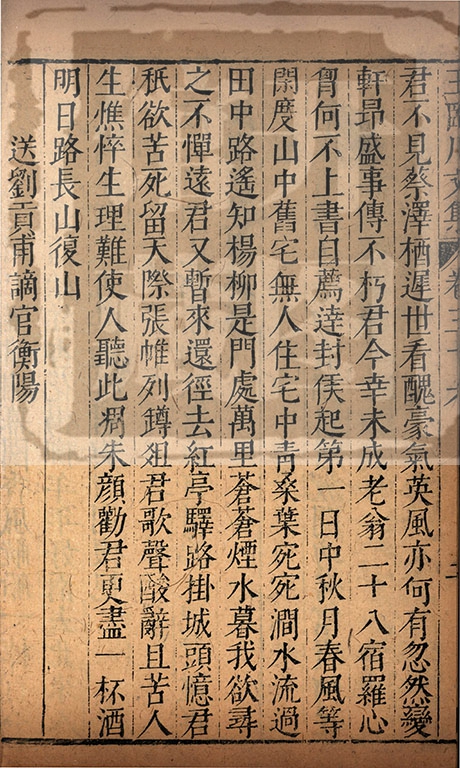 王臨川文集 卷三十六
君不見蔡澤栖遲世看醜豪氣英風亦何有忽然變
軒昂盛事傳不朽君今幸未成老翁二十八宿羅心
胷何不上書自薦達封侯起第一日中秋月春風等
閑度山中舊宅無人住宅中青桑葉宛宛澗水流過
田中路遙知楊柳是門處萬里蒼蒼煙水暮我欲尋
之不憚遠君又暫來還徑去紅亭驛路掛城頭憶君
秖欲苦死留天際張帷列鐏俎君歌聲酸辭且苦人
生憔悴生理難使人聽此凋朱顔勸君更盡一杯酒
明日路長山復山
送劉貢甫謫官衡陽